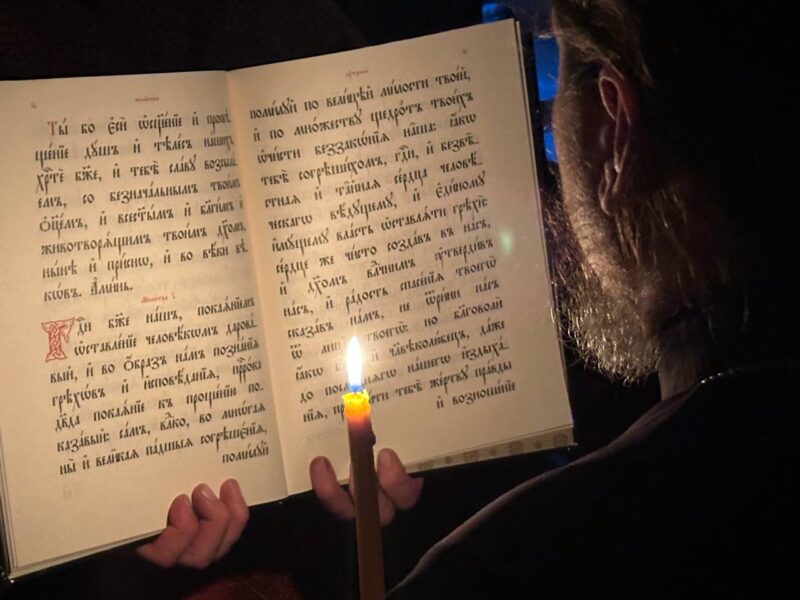 Ты́ бо є҆сѝ ѡ҆сщ҃е́нїе и҆ просвѣ
ще́нїе дꙋ́шъ и҆ тѣле́съ на́шихъ
хрⷭ҇тѐ бж҃е, и҆ тебѣ̀ сла́вꙋ возсыла́
емъ, со безнача́льнымъ твои́мъ
ѻ҆ц҃е́мъ, и҆ всест҃ы́мъ и҆ бл҃ги́мъ и҆
животворѧ́щимъ твои́мъ дх҃омъ,
ны́нѣ и҆ при́снѡ, и҆ во вѣ́ки вѣ
кѡ́въ. А҆ми́нь.
Моли́тва
Гдⷭ҇и бж҃е на́шъ, покаѧ́нїемъ
ѡ҆ставле́нїе человѣ́кѡмъ дарова́
вый, и҆ во ѻ҆́бразъ на́мъ позна́нїѧ
грѣхѡ́въ и҆ и҆сповѣ́данїѧ, прⷪ҇ро́ка
дв҃да покаѧ́нїе къ проще́нїю по
каза́вый: са́мъ, влⷣко, во мнѡ́гаѧ
ны̀ и҆ вели́каѧ па́дшыѧ согрѣшє́нїѧ,
поми́лꙋй
поми́лꙋй по вели́цѣй ми́лости твое́й,
и҆ по мно́жествꙋ щедро́тъ твои́хъ
ѡ҆чи́сти беззакѡ́нїѧ на̑ша: ꙗ҆́кѡ
тебѣ̀ согрѣши́хомъ, гдⷭ҇и, и҆ безвѣ́
стнаѧ и҆ та̑йнаѧ се́рдца человѣ́
ческагѡ вѣ́дꙋщемꙋ, и҆ є҆ди́номꙋ
и҆мꙋ́щемꙋ вла́сть ѡ҆ставлѧ́ти грѣхѝ:
се́рдце же чи́сто созда́въ въ на́съ,
и҆ дх҃омъ влⷣчнимъ ᲂу҆тверди́въ
на́съ, и҆ ра́дость спасе́нїѧ твоегѡ̀
сказа́въ на́мъ, не ѿри́ни на́съ
ѿ твоегѡ̀ но бл҃говолѝ
ꙗ҆́кѡ и҆ чл҃вѣколю́бецъ, да́же
до на́шегѡ и҆здыха́
нїѧ, тебѣ̀ же́ртвꙋ пра́вды
и҆ возноше́нїе